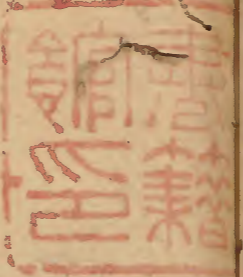 書籍
館印